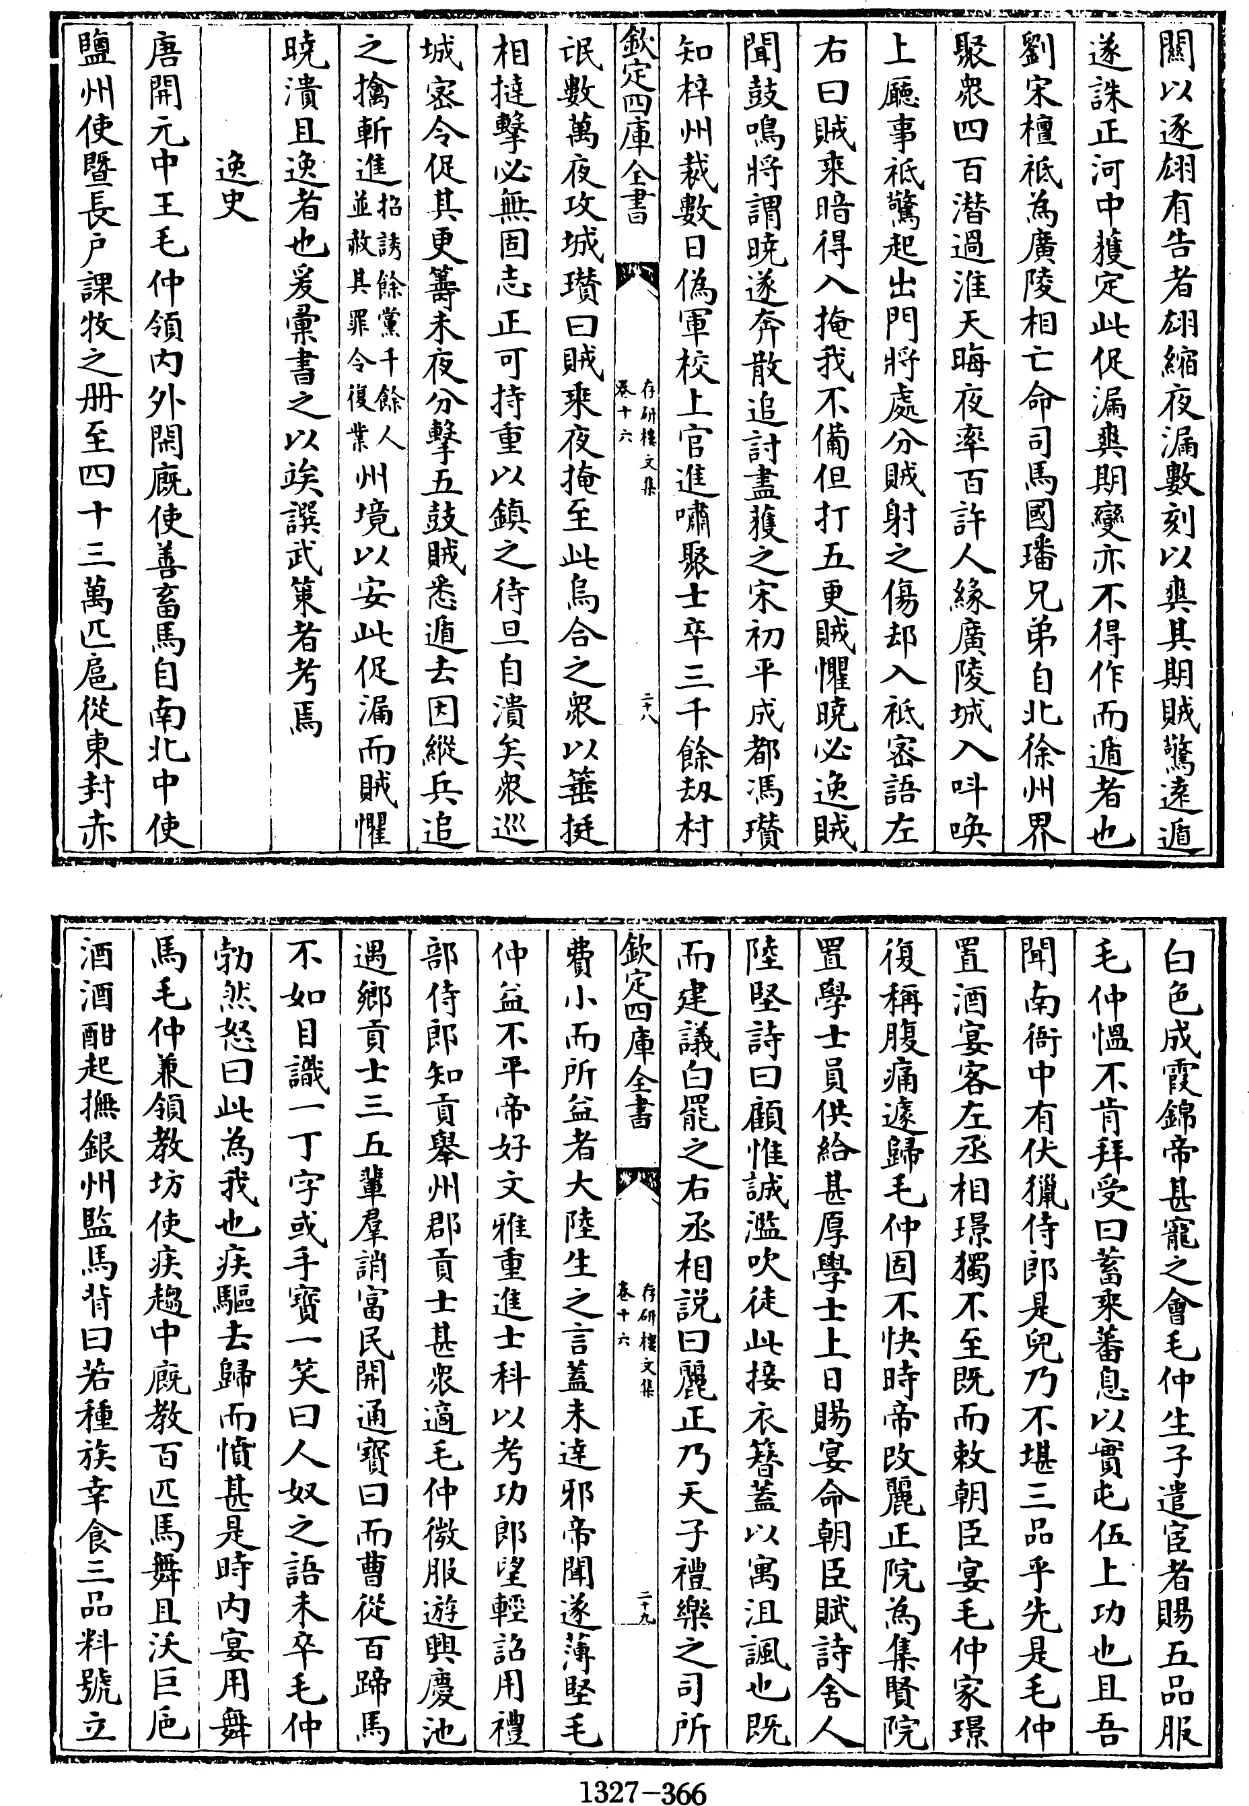 關以逐翃有告者翃縮夜漏數刻以爽其期賊驚遠遁
遂誅正河中獲定此促漏爽期變亦不得作而遁者也
劉宋檀祗為廣陵相亡命司馬國璠兄弟自北徐州界
聚衆四百潛過淮天晦夜率百許人緣廣陵城入呌喚
上廳事祗驚起出門將處分賊射之傷却入祗密語左
右曰賊乘暗得入掩我不備但打五更賊懼曉必逸賊
聞鼓鳴將謂曉遂奔散追討盡獲之宋初平成都馮瓚
知梓州裁數日偽軍校上官進嘯聚士卒三千餘刼村
欽定四庫全書
存研樓文集
卷十六
二十八
氓數萬夜攻城瓚曰賊乘夜掩至此烏合之衆以箠挺
相撻擊必無固志正可持重以鎮之待旦自潰矣衆巡
城密令促其更籌未夜分擊五鼓賊悉遁去因縱兵追
之擒斬進招誘餘黨千餘人並赦其罪令復業州境以安此促漏而賊懼
曉潰且逸者也爰彙書之以竢譔武策者考焉
逸史
唐開元中王毛仲領內外閑廐使善畜馬自南北中使
鹽州使暨長户課牧之册至四十三萬匹扈從東封赤
白色成霞錦帝甚寵之會毛仲生子遣宦者賜五品服
毛仲愠不肯拜受曰蓄乘蕃息以實屯伍上功也且吾
聞南衙中有伏獵侍郎是兒乃不堪三品乎先是毛仲
置酒宴客左丞相璟獨不至既而敕朝臣宴毛仲家璟
復稱腹痛遽歸毛仲固不快時帝改麗正院為集賢院
置學士員供給甚厚學士上日賜宴命朝臣賦詩舍人
陸堅詩曰顧惟誠濫吹徒此接衣簪蓋以寓沮諷也既
而建議白罷之右丞相説曰麗正乃天子禮樂之司所
欽定四庫全書
存研樓文集
卷十六
二十九
費小而所益者大陸生之言蓋未達邪帝聞遂薄堅毛
仲益不平帝好文雅重進士科以考功郎望輕詔用禮
部侍郎知貢舉州郡貢士甚衆適毛仲微服遊興慶池
遇鄉貢士三五輩羣誚富民開通寳曰而曹從百蹄馬
不如目識一丁字或手寳一笑曰人奴之語未卒毛仲
勃然怒曰此為我也疾驅去歸而憤甚是時内宴用舞
馬毛仲兼領教坊使疾趨中廐教百匹馬舞且沃巨巵
酒酒酣起撫銀州監馬背曰若種族幸食三品料號立
1327-366